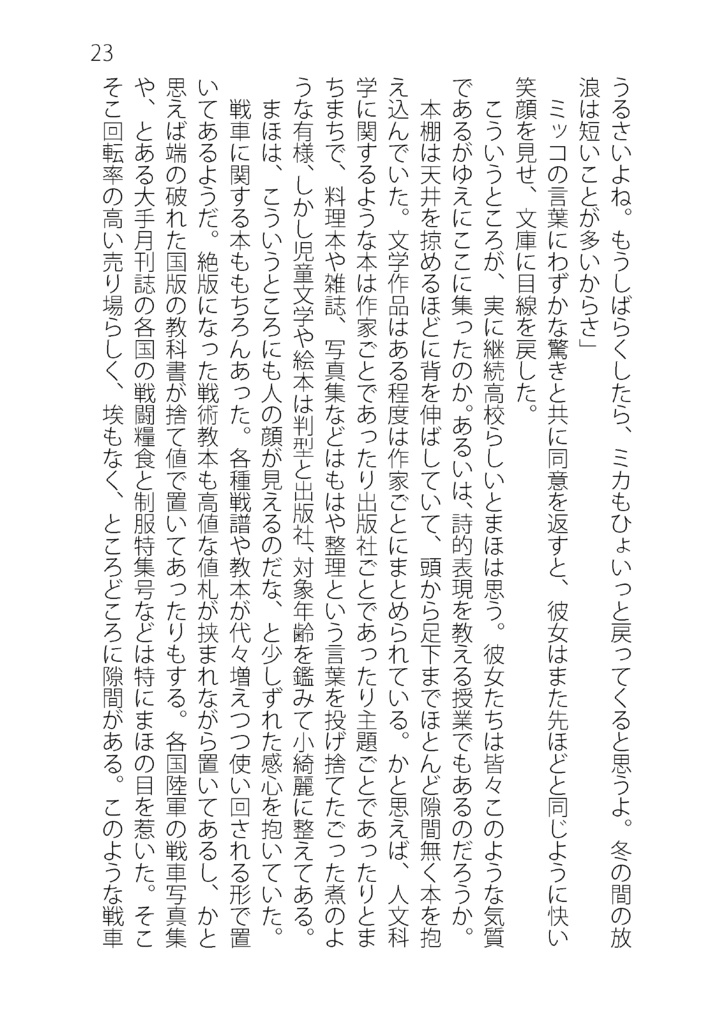 23
うるさいよね。もうしばらくしたら、ミカもひょいっと戻ってくると思うよ。冬の間の放
浪は短いことが多いからさ」
ミッコの言葉にわずかな驚きと共に同意を返すと、彼女はまた先ほどと同じように快い
笑顔を見せ、文庫に目線を戻した。
こういうところが、実に継続高校らしいとまほは思う。彼女たちは皆々このような気質
であるがゆえにここに集ったのか。あるいは、詩的表現を教える授業でもあるのだろうか。
本棚は天井を掠めるほどに背を伸ばしていて、頭から足下までほとんど隙間無く本を抱
え込んでいた。文学作品はある程度は作家ごとにまとめられている。かと思えば、人文科
学に関するような本は作家ごとであったり出版社ごとであったり主題ごとであったりとま
ちまちで、料理本や雑誌、写真集などはもはや整理という言葉を投げ捨てたごった煮のよ
うな有様、しかし児童文学や絵本は判型と出版社、対象年齢を鑑みて小綺麗に整えてある。
まほは、こういうところにも人の顔が見えるのだな、と少しずれた感心を抱いていた。
戦車に関する本ももちろんあった。各種戦譜や教本が代々増えつつ使い回される形で置
いてあるようだ。絶版になった戦術教本も高値な値札が挟まれながら置いてあるし、かと
思えば端の破れた国版の教科書が捨て値で置いてあったりもする。各国陸軍の戦車写真集
や、とある大手月刊誌の各国の戦闘糧食と制服特集号などは特にまほの目を惹いた。そこ
そこ回転率の高い売り場らしく、埃もなく、ところどころに隙間がある。このような戦車